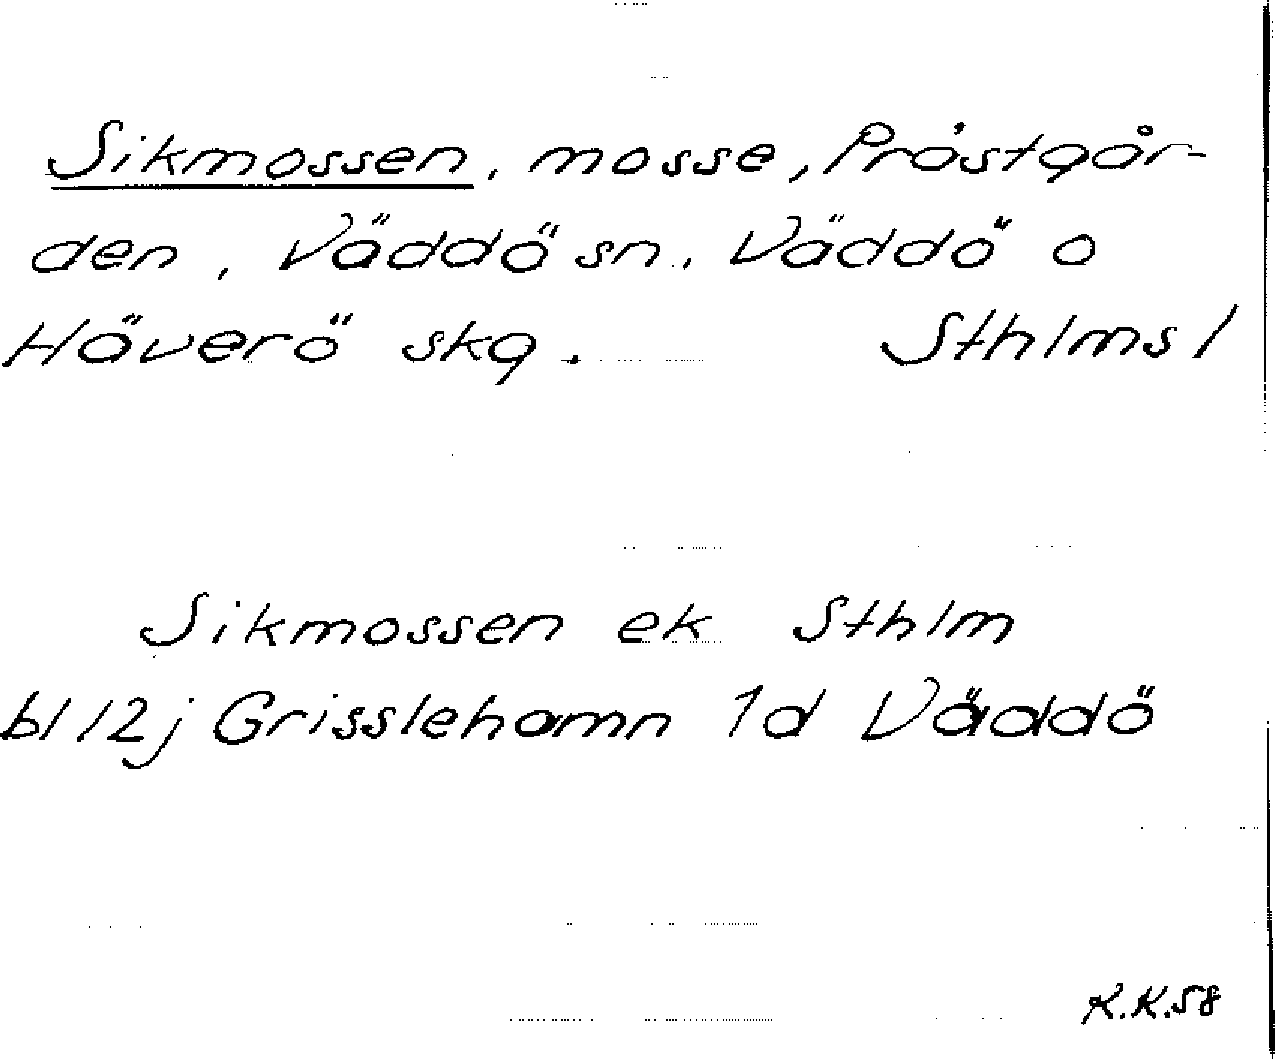 Sikmossen, mosse, Prästgår-
den, Väddö sn., Väddö o
Häverö skg. Sthlms l
Sikmossen ek Sthlm
bl 12j Grisslehamn 1d Väddö
K.K.58